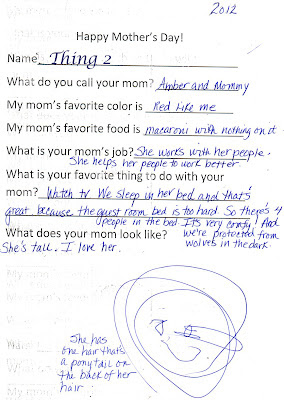 2012
Happy Mother's Day!
Name Thing 2
What do you call your mom? Amber and Mommy
My mom's favorite color is Red like me
My mom's favorite food is macaroni with nothing on it.
What is your mom's job? She works with her people.
She helps her people to work better.
What is your favorite thing to do with your
mom? Watch tv. We sleep in her bed and that's
great because the guest room bed is too hard. So there's 4
people in the bed. It's very comfy! And
we're protected from
wolves in the dark.
What does your mom look like?
She's tall. I love her.
She has
one hair that's
a ponytail on
the back of her
hair.